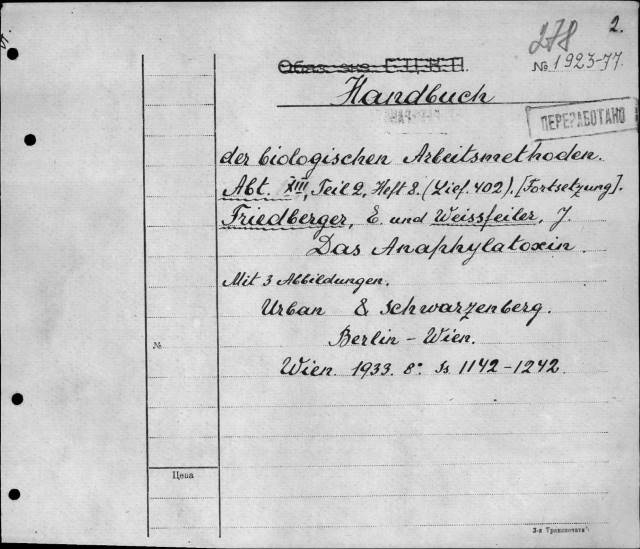 2.
278
Обяз. экз. Г.Ц.К.П.
№ 1923-77.
Handbuch
ПЕРЕРАБОТАНО
der biologischen Arbeitsmethoden.
Abt. XIII, Teil 2, Heft 8. (Lief. 402). [Fortsetzung].
Friedberger, E. und Weissfeiler, J.
Das Anaphylatoxin.
Mit 3 Abbildungen.
Urban & Schwarzenberg.
Berlin - Wien.
№
Wien. 1933. 8°. Ss. 1142-1242.
Цена
3-я Транспечать